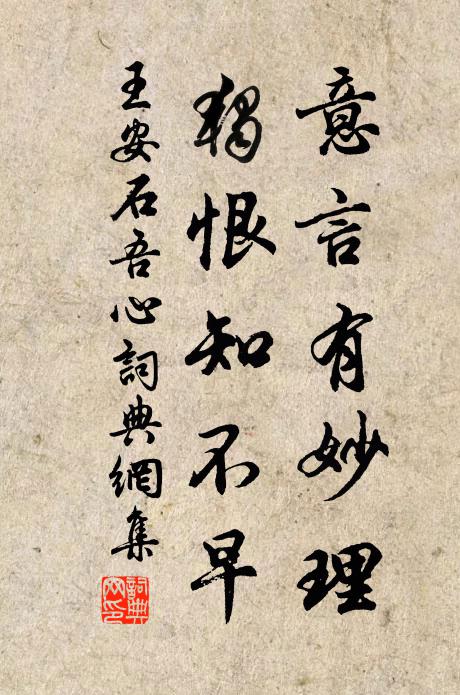 意言有妙理
獨恨知不早
王安石吾心詞典網集
詞典網印